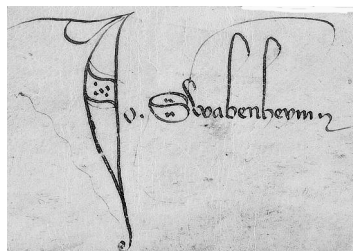 Jo. Swabenheym